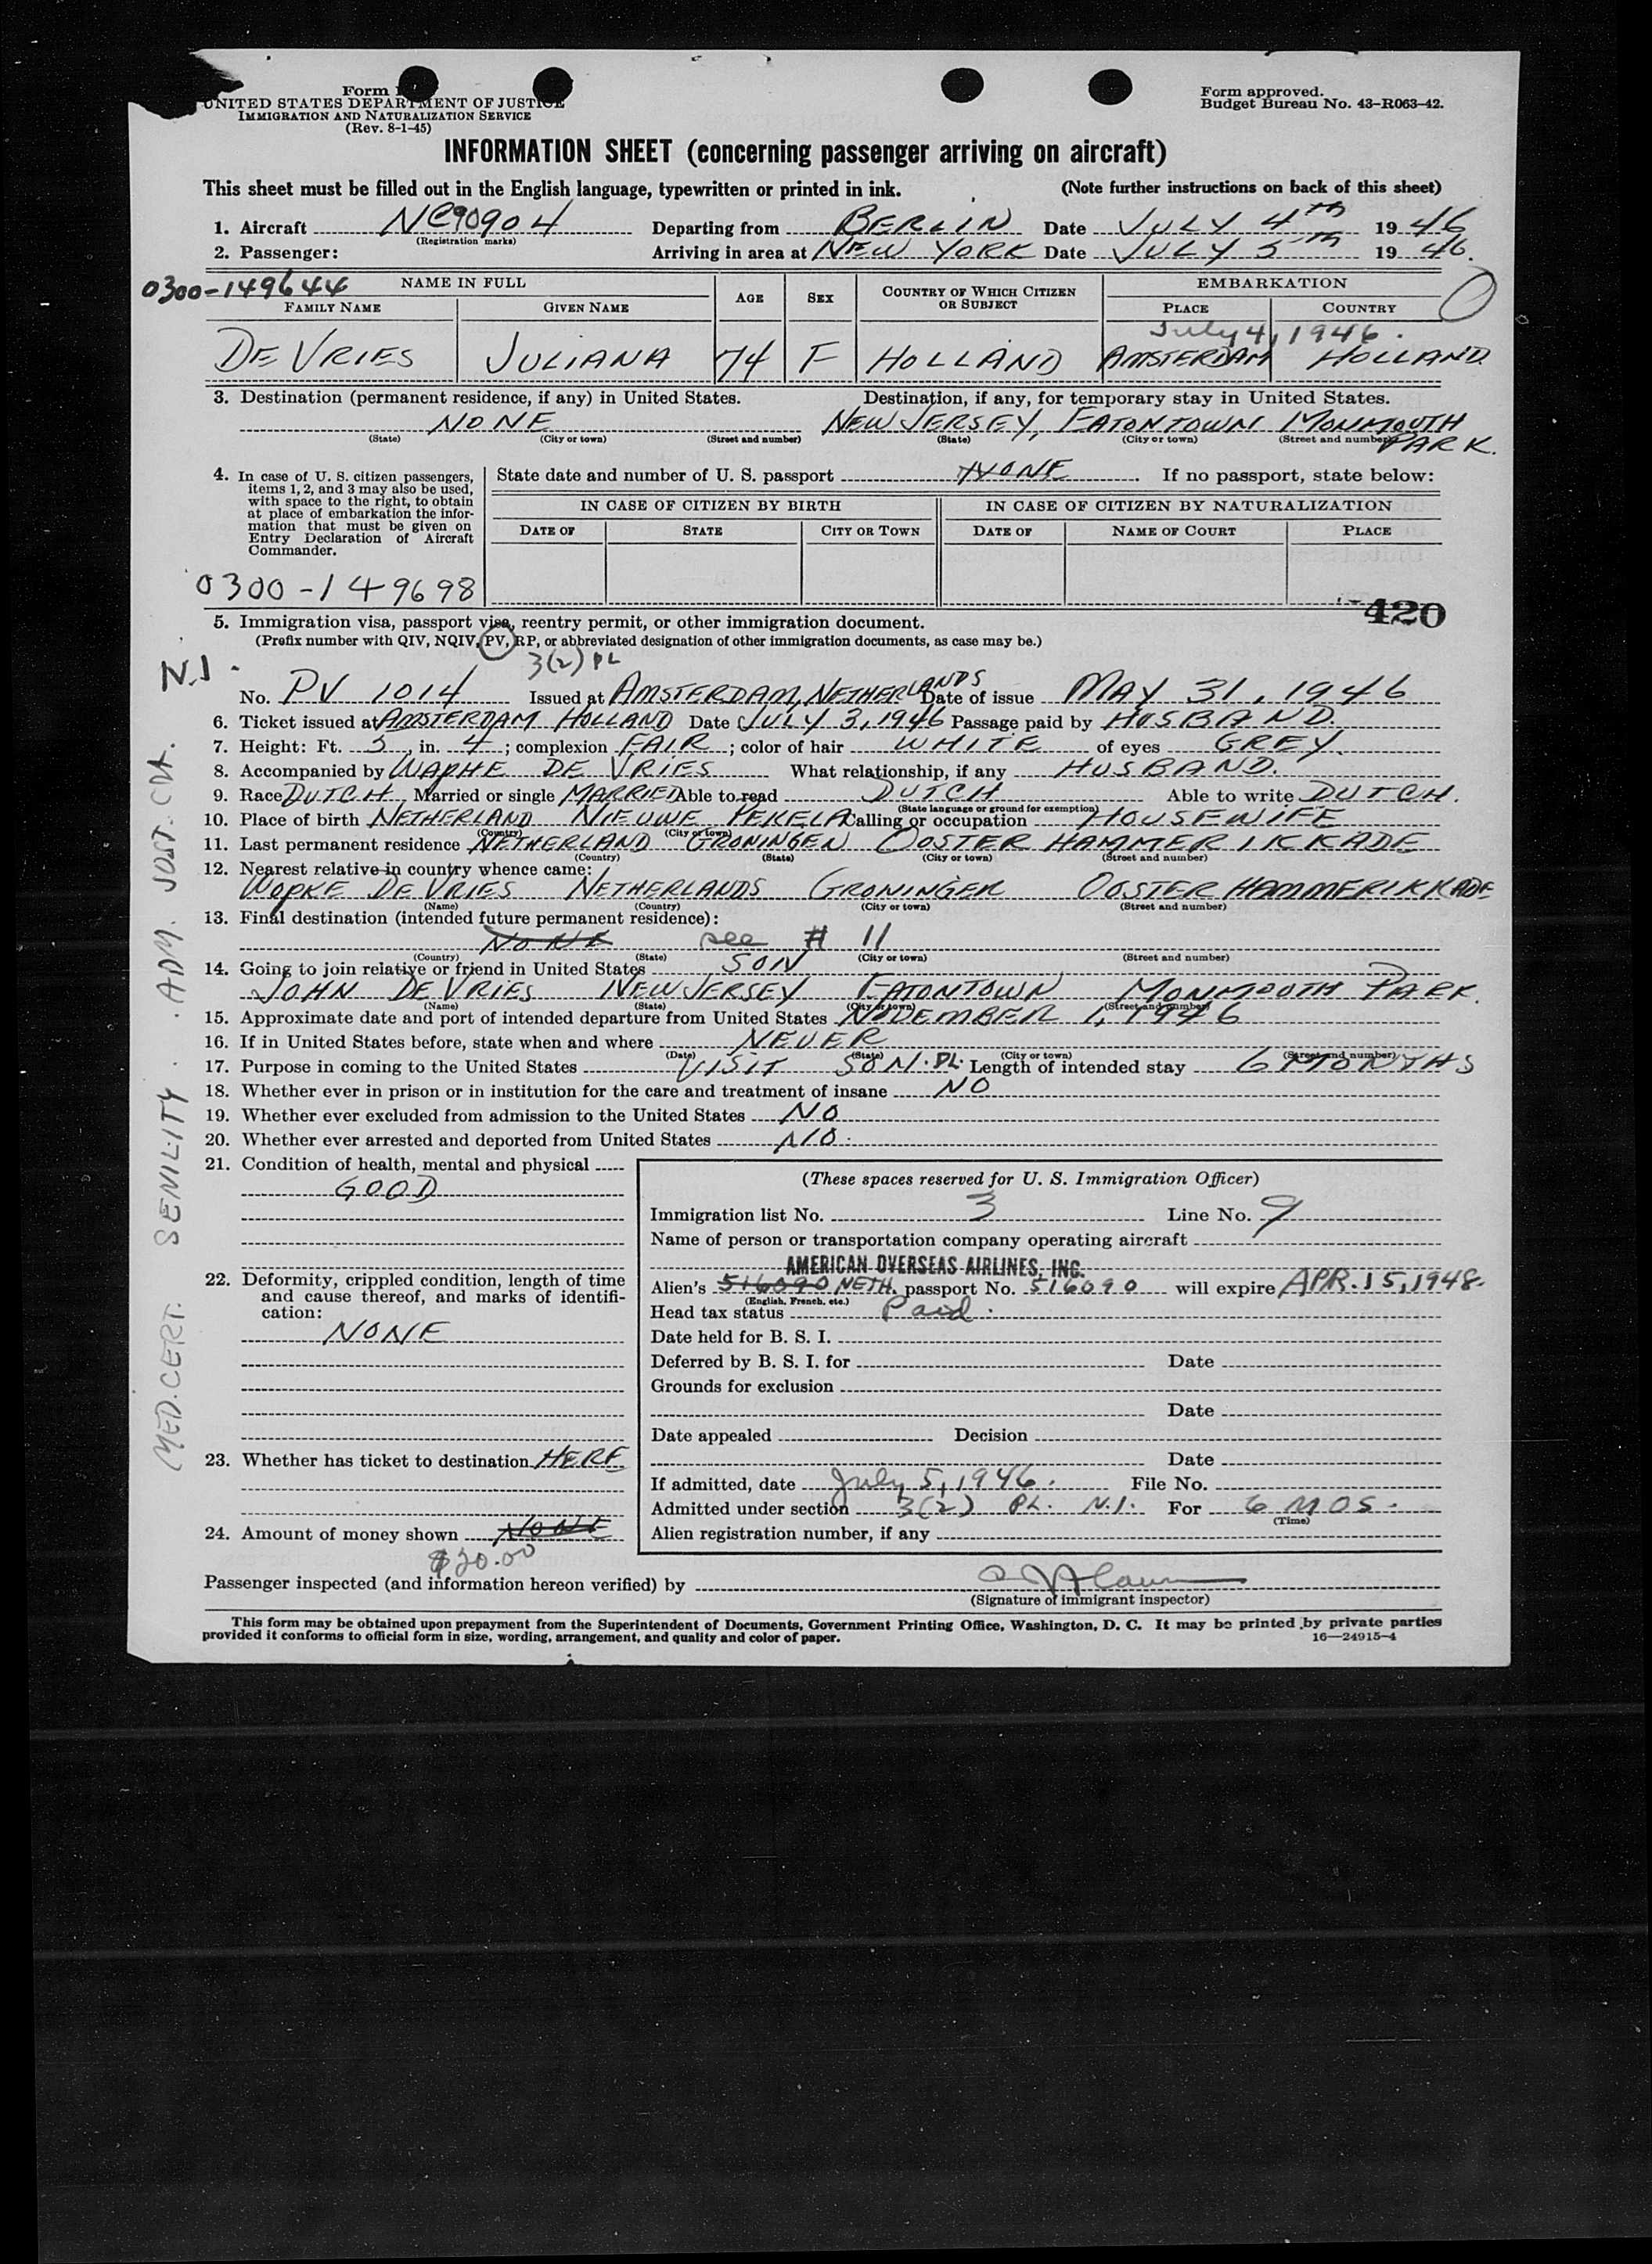 Form I
UNITED STATES DEPARTMENT OF JUSTICE
IMMIGRATION AND NATURALIZATION SERVICE
(Rev. 8-1-45)
Form approved.
Budget Bureau No. 43-R063-42.
INFORMATION SHEET (concerning passenger arriving on aircraft)
This sheet must be filled out in the English language, typewritten or printed in ink. (Note further instructions on back of this sheet)
1. Aircraft NC90904 Departing from BERLIN Date JULY 4TH 1946
(Registration marks)
2. Passenger: Arriving in area at NEW YORK Date JULY 5TH 1946.
0300-149644
NAME IN FULL AGE SEX COUNTRY OF WHICH CITIZEN OR SUBJECT EMBARKATION 0
FAMILY NAME GIVEN NAME PLACE COUNTRY
July 4, 1946.
DE VRIES JULIANA 74 F HOLLAND AMSTERDAM HOLLAND
3. Destination (permanent residence, if any) in United States. Destination, if any, for temporary stay in United States.
NONE NEW JERSEY, EATONTOWN MONMOUTH PARK.
(State) (City or town) (Street and number) (State) (City or town) (Street and number)
4. In case of U. S. citizen passengers, items 1, 2, and 3 may also be used, with space to the right, to obtain at place of embarkation the information that must be given on Entry Declaration of Aircraft Commander.
State date and number of U. S. passport NONE. If no passport, state below:
IN CASE OF CITIZEN BY BIRTH IN CASE OF CITIZEN BY NATURALIZATION
DATE OF STATE CITY OR TOWN DATE OF NAME OF COURT PLACE
0300-149698
420
5. Immigration visa, passport visa, reentry permit, or other immigration document.
(Prefix number with QIV, NQIV, PV, RP, or abbreviated designation of other immigration documents, as case may be.)
3(2) PL
No. PV 1014 Issued at AMSTERDAM, NETHERLANDS Date of issue MAY 31, 1946
6. Ticket issued at AMSTERDAM HOLLAND Date JULY 3, 1946 Passage paid by HUSBAND.
7. Height: Ft. 5, in. 4; complexion FAIR; color of hair WHITE of eyes GREY.
8. Accompanied by WAPHE DE VRIES What relationship, if any HUSBAND.
9. Race DUTCH Married or single MARRIED Able to read DUTCH Able to write DUTCH.
(State language or ground for exemption)
10. Place of birth NETHERLAND NIEUWE PEKELA Calling or occupation HOUSEWIFE
(Country) (City or town)
11. Last permanent residence NETHERLAND GRONINGEN OOSTER HAMMERIKKADE
(Country) (State) (City or town) (Street and number)
12. Nearest relative in country whence came:
WOPKE DE VRIES NETHERLANDS GRONINGER OOSTER HAMMERIKKADE
(Name) (Country) (City or town) (Street and number)
13. Final destination (intended future permanent residence):
NONE see # 11
(Country) (State) (City or town) (Street and number)
14. Going to join relative or friend in United States SON
JOHN DE VRIES NEW JERSEY EATONTOWN MONMOUTH PARK.
(Name) (State) (City or town) (Street and number)
15. Approximate date and port of intended departure from United States NOVEMBER 1, 1946
16. If in United States before, state when and where NEVER
(Date) (State) (City or town) (Street and number)
17. Purpose in coming to the United States VISIT SON. PL. Length of intended stay 6 MONTHS
18. Whether ever in prison or in institution for the care and treatment of insane NO
19. Whether ever excluded from admission to the United States NO
20. Whether ever arrested and deported from United States NO.
21. Condition of health, mental and physical
GOOD
22. Deformity, crippled condition, length of time and cause thereof, and marks of identification:
NONE
23. Whether has ticket to destination HERE
24. Amount of money shown NONE
$20.00
(These spaces reserved for U. S. Immigration Officer)
Immigration list No. 3 Line No. 9
Name of person or transportation company operating aircraft
AMERICAN OVERSEAS AIRLINES, INC.
Alien's 516090 NETH. passport No. 516090 will expire APR. 15, 1948.
(English, French, etc.)
Head tax status Paid.
Date held for B. S. I.
Deferred by B. S. I. for Date
Grounds for exclusion
Date
Date appealed Decision
Date
If admitted, date July 5, 1946. File No.
Admitted under section 3(2) PL. N.I. For 6 MOS.
(Time)
Alien registration number, if any
Passenger inspected (and information hereon verified) by
(Signature of immigrant inspector)
This form may be obtained upon prepayment from the Superintendent of Documents, Government Printing Office, Washington, D. C. It may be printed by private parties
provided it conforms to official form in size, wording, arrangement, and quality and color of paper. 16—24915-4
MED. CERT. SENILITY. ADM. N.I.